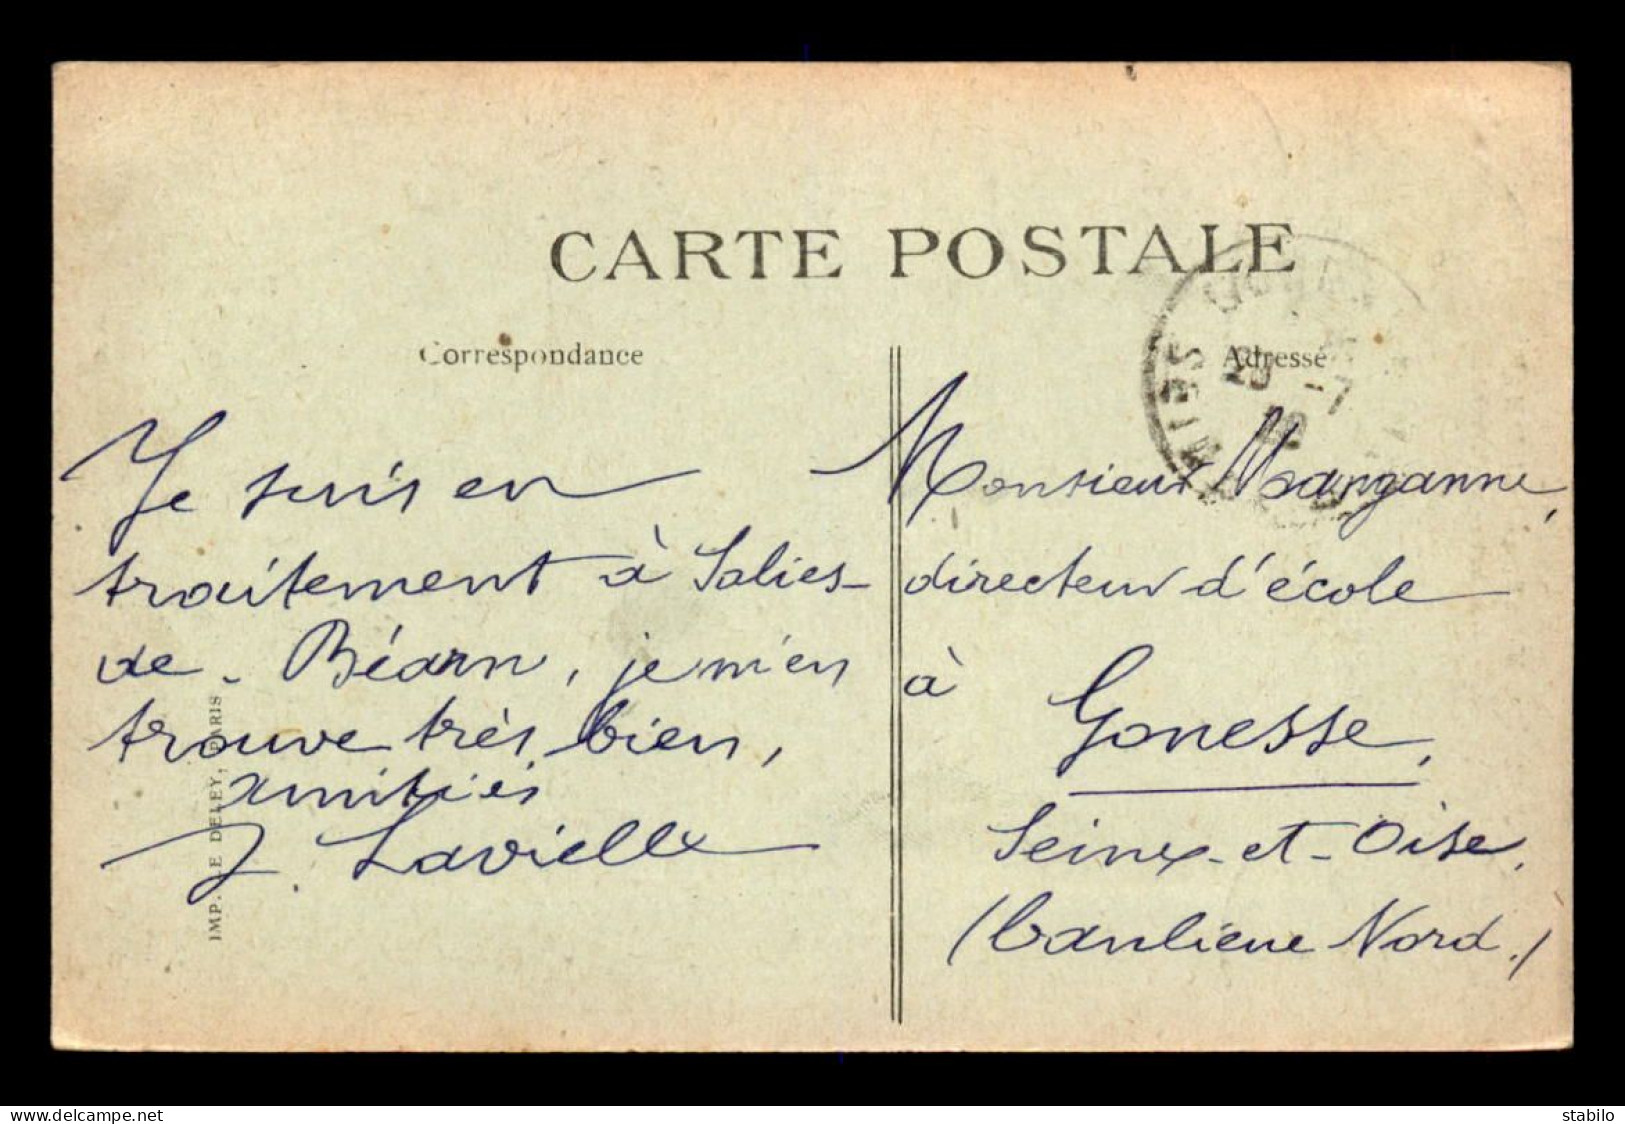 CARTE POSTALE
Correspondance
Adresse
Je suis en
traitement à Salies-
de-Béarn, je m'en
trouve très bien,
amitiés
J. Lavielle
IMP. LE DELEY, PARIS
Monsieur Marganne,
directeur d'école
à Gonesse,
Seine-et-Oise,
(banlieue Nord.)
delcampe.net
stabilo